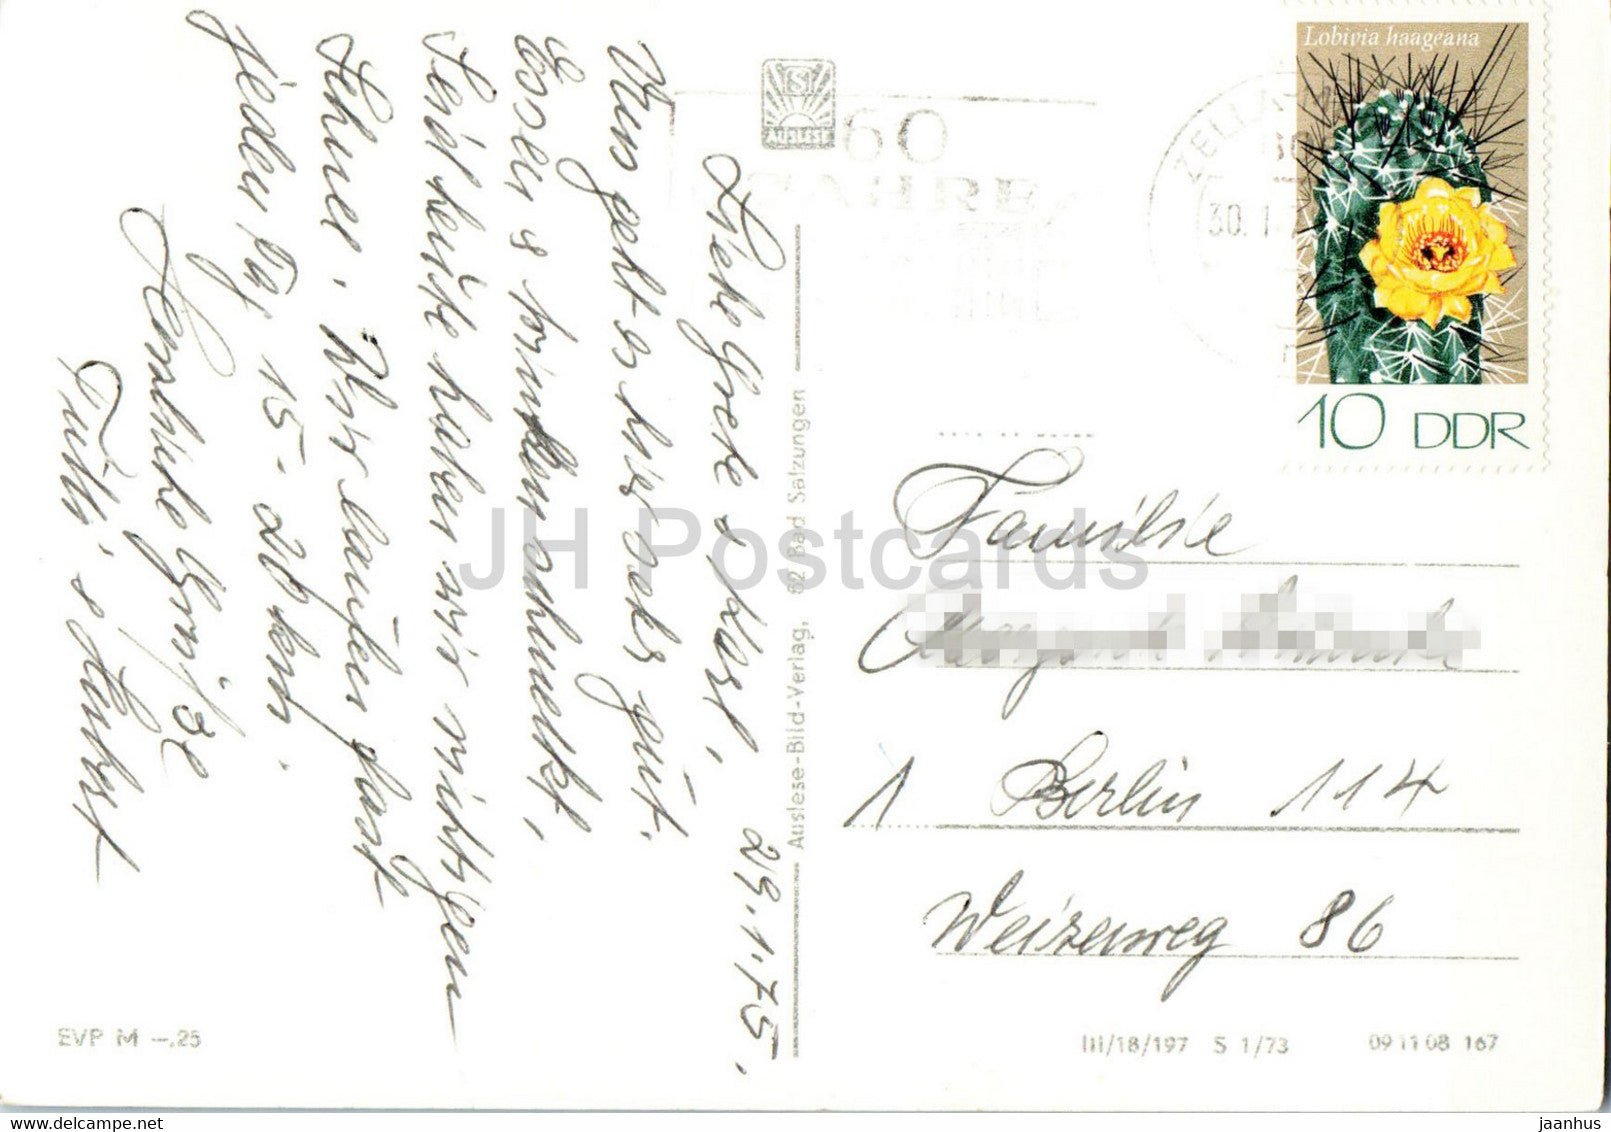 29.1.75.
Liebe Grete & Karl,
Uns geht es hier sehr gut.
Essen & trinken schmeckt,
Seid heute haben wir richtigen
Schnee. Wir laufen fast
jeden Tag 15-20 km.
Herzliche Grüße
AUSLESE
60
JAHRE
ZELLA
30.1
Lobivia haageana
10 DDR
Familie
1 Berlin 114
Weizenweg 86
Auslese-Bild-Verlag, 62 Bad Salzungen
EVP M -.25
III/18/197 S 1/73
09 11 08 167
JH Postcards
jaanhus
www.delcampe.net